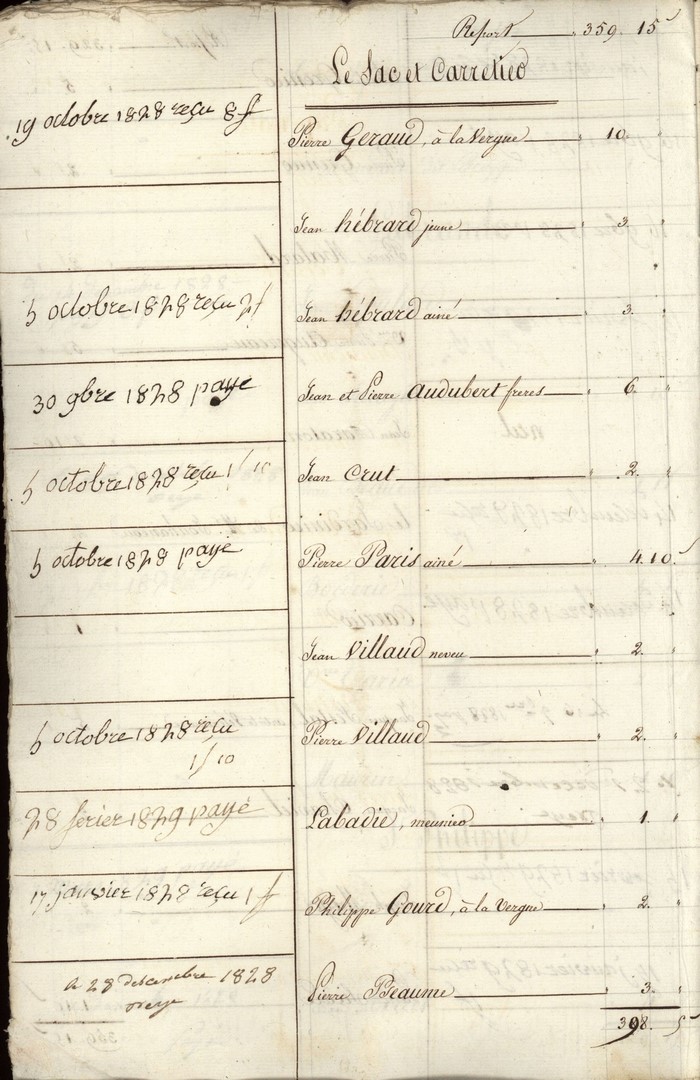 Report 359. 15
Le Sac et Carretier
19 octobre 1828 reçu 8 f
Pierre Geraud, à la Vergne " 10. "
Jean hébrard jeune " 3. "
5 octobre 1828 reçu 2 f
Jean hébrard ainé " 3. "
30 9bre 1828 payé
Jean et Pierre Audubert freres " 6. "
5 octobre 1828 reçu 1 f 10
Jean Crut " 2. "
5 octobre 1828 payé
Pierre Paris ainé " 4. 10.
Jean Villaud neveu " 2. "
5 octobre 1828 reçu
1 f 10
Pierre Villaud " 2. "
28 férier 1829 payé
Labadie, meunier " 1. "
17 janvier 1828 reçu 1 f
Philippe Gourd, à la Vergne " 2. "
a 28 decembre 1828
Pierre Beaume " 3. "
398. 5